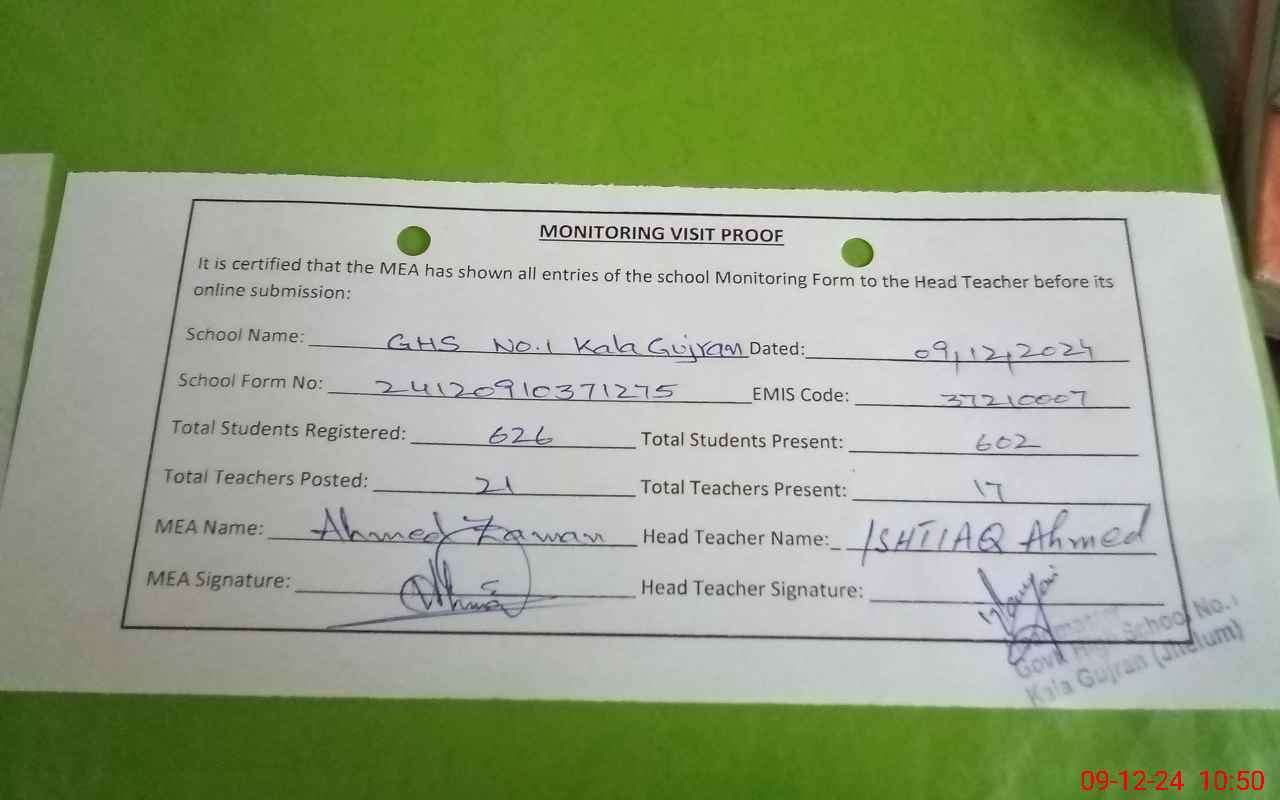 MONITORING VISIT PROOF
It is certified that the MEA has shown all entries of the school Monitoring Form to the Head Teacher before its
online submission:
School Name: GHS No.1 Kala Gujran Dated: 09,12,2024
School Form No: 24120910371275 EMIS Code: 37210007
Total Students Registered: 626 Total Students Present: 602
Total Teachers Posted: 21 Total Teachers Present: 17
MEA Name: Ahmed Zaman Head Teacher Name: ISHTIAQ Ahmed
MEA Signature: Head Teacher Signature:
Govt High School No.1
Kala Gujran (Jhelum)
09-12-24 10:50